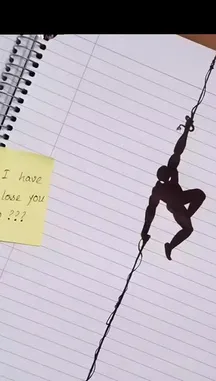 I have
lose you
???